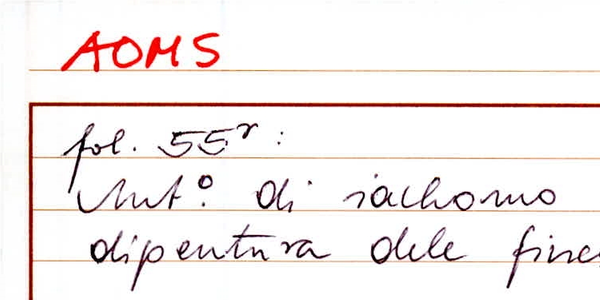 AOMS
fol. 55r:
Ant.º di iachomo
dipentura dele fines